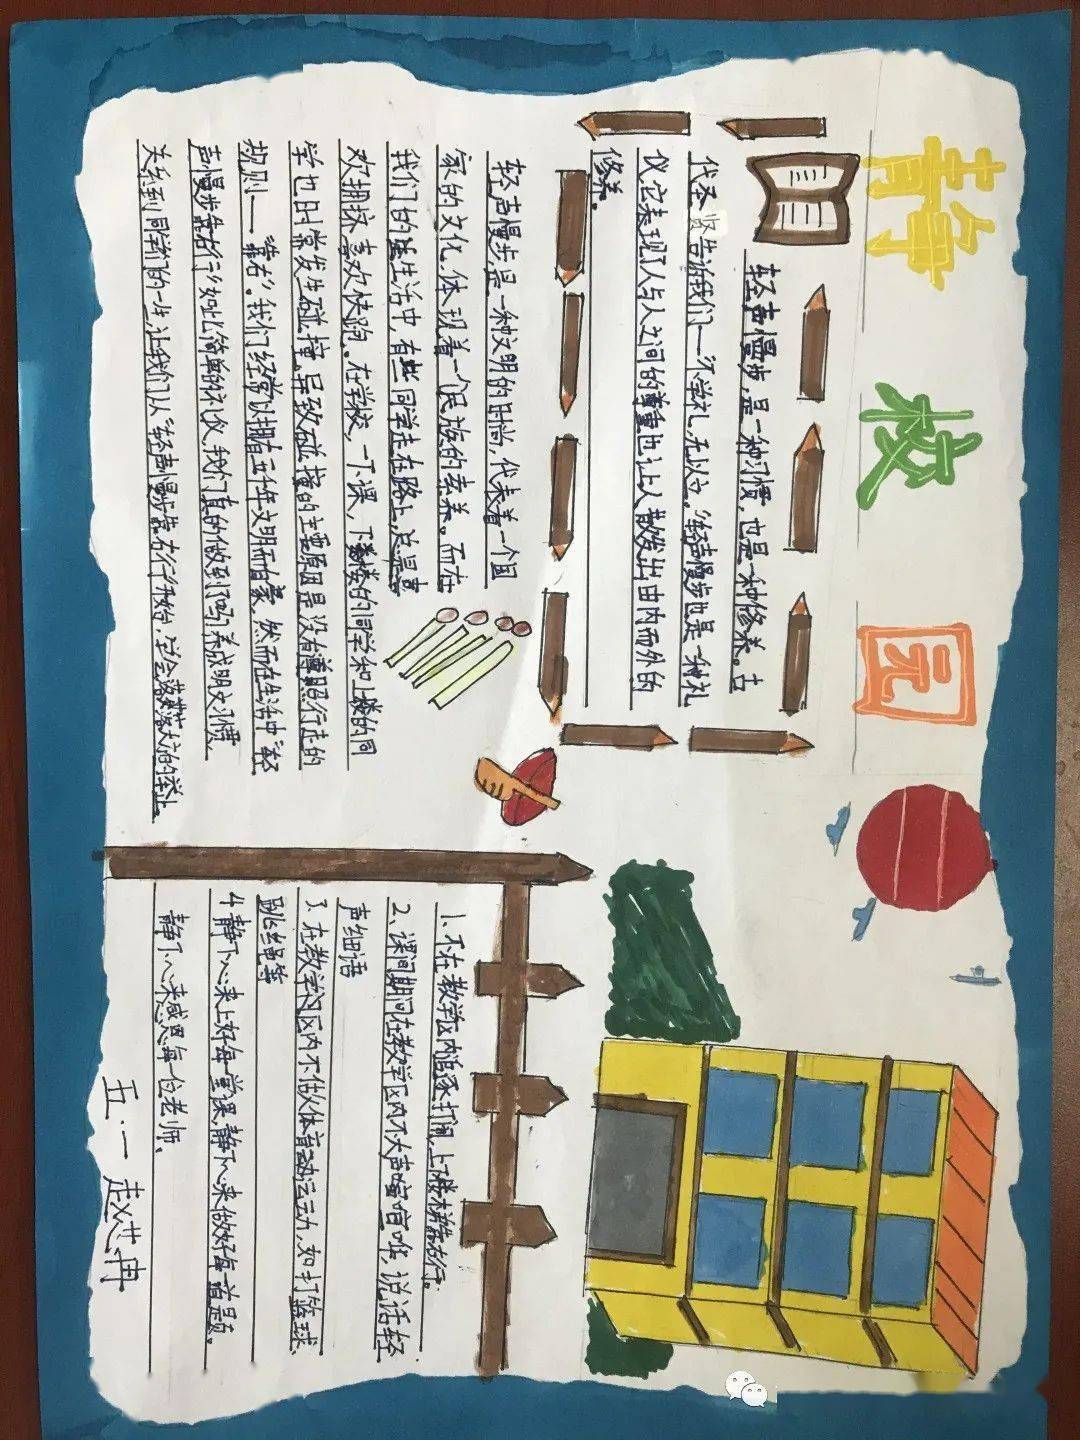 静校园
轻声慢步,是一种习惯,也是一种修养。古
代圣贤告诉我们——“不学礼,无以立。”轻声慢步也是一种礼
仪它表现了人与人之间的尊重也让人散发出由内而外的
修养。
轻声慢步,是一种文明的时尚,代表着一个国
家的文化,体现着一个民族的素养。而在
我们的生活中,有些同学走在路上,总是喜
欢拥挤,喜欢快跑。在学校,一下课,下楼的同学和上楼的同
学也时常发生碰撞。导致碰撞的主要原因是没有遵照行走的
规则——“靠右”。我们经常以拥有五千年文明而自豪,然而在生活中“轻
声慢步靠右行”如此简单的礼仪,我们真的做到了吗?养成明文习惯
关系到同学们的一生,让我们从“轻声慢步靠右行”开始,学会落落大方的举止。
1、不在教学区内追逐打闹,上下楼梯靠右行。
2、课间期间在教学区内不大声喧哗,说话轻
声细语
3、在教学区内不做体育运动,如打篮球、
跳绳等
4静下心来上好每一堂课,静下心来做好每一道题。
静下心来感恩每一位老师。
五.一 赵艺冉